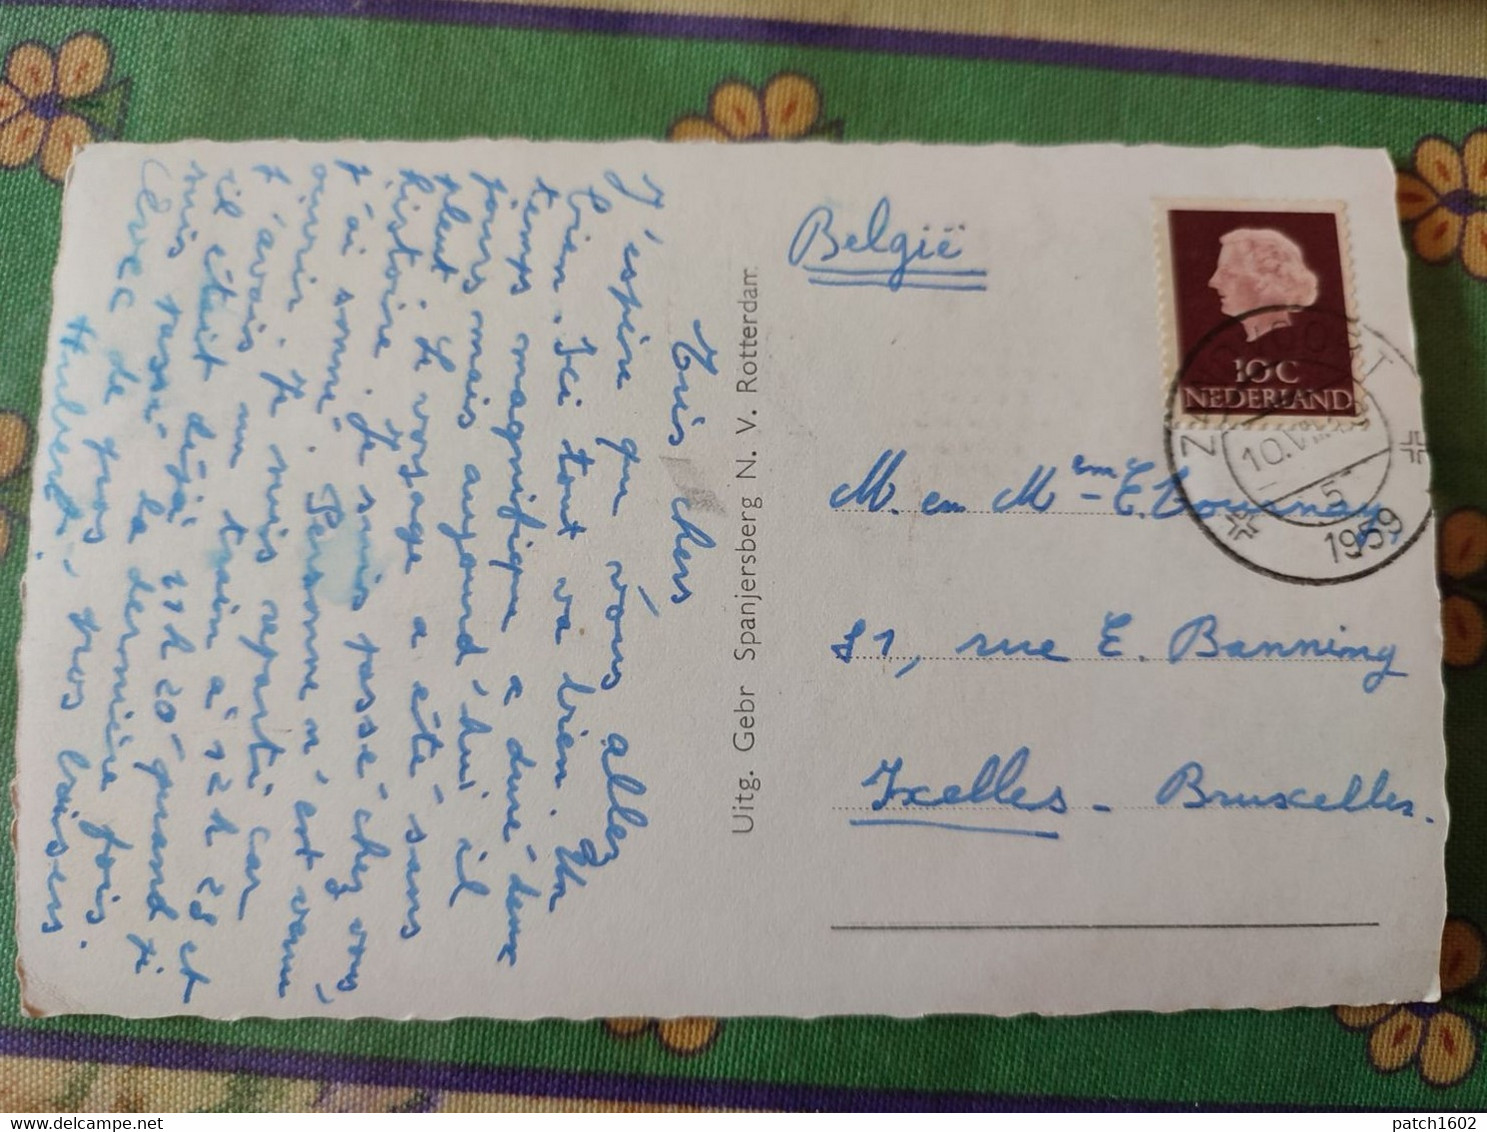 Très chers
J'espère que vous allez
bien. Ici tout va bien. Un
temps magnifique a duré deux
jours mais aujourd'hui il
pleut. Le voyage a été sans
histoire. Je suis passé chez vous,
j'ai sonné. Personne n'est venu
ouvrir. Je suis reparti car
j'avais un train à 12 h 28 et
il était déjà 11 h 20 quand je
suis passé la dernière fois.
Avec de gros gros baisers
Uitg. Gebr Spanjersberg N. V. Rotterdam
België
10 C
NEDERLAND
1959
M. en Mme E.
81, rue E. Banning
Ixelles - Bruxelles.
patch1602